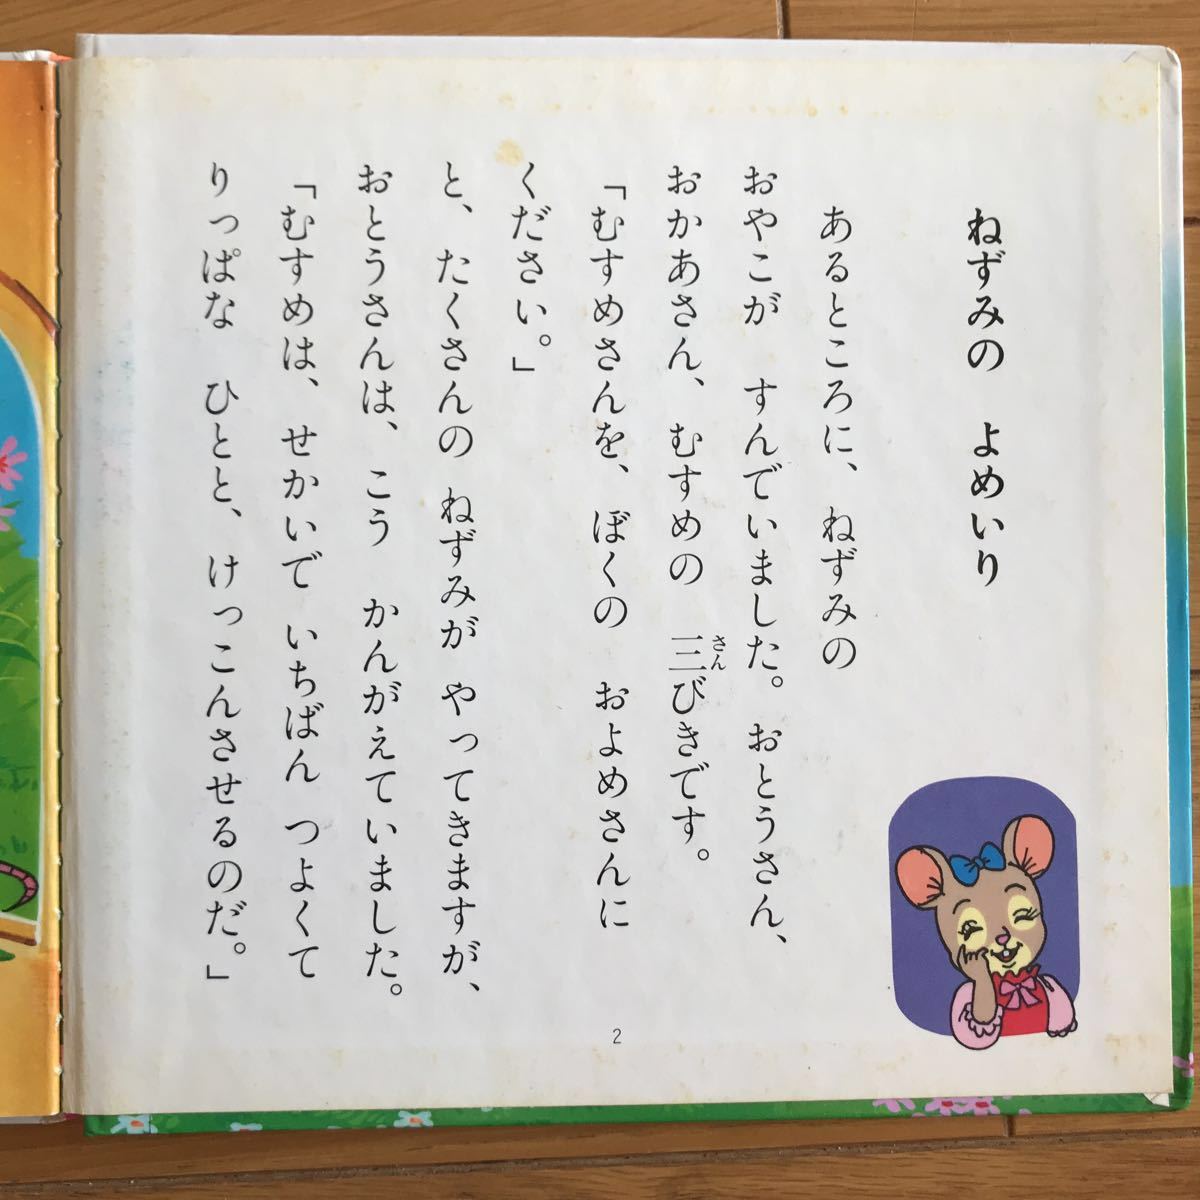 ねずみの　よめいり
あるところに、ねずみの
おやこが　すんでいました。おとうさん、
おかあさん、むすめの　三びきです。
さん
「むすめさんを、ぼくの　およめさんに
ください。」
と、たくさんの　ねずみが　やってきますが、
おとうさんは、こう　かんがえていました。
「むすめは、せかいで　いちばん　つよくて
りっぱな　ひとと、けっこんさせるのだ。」
2